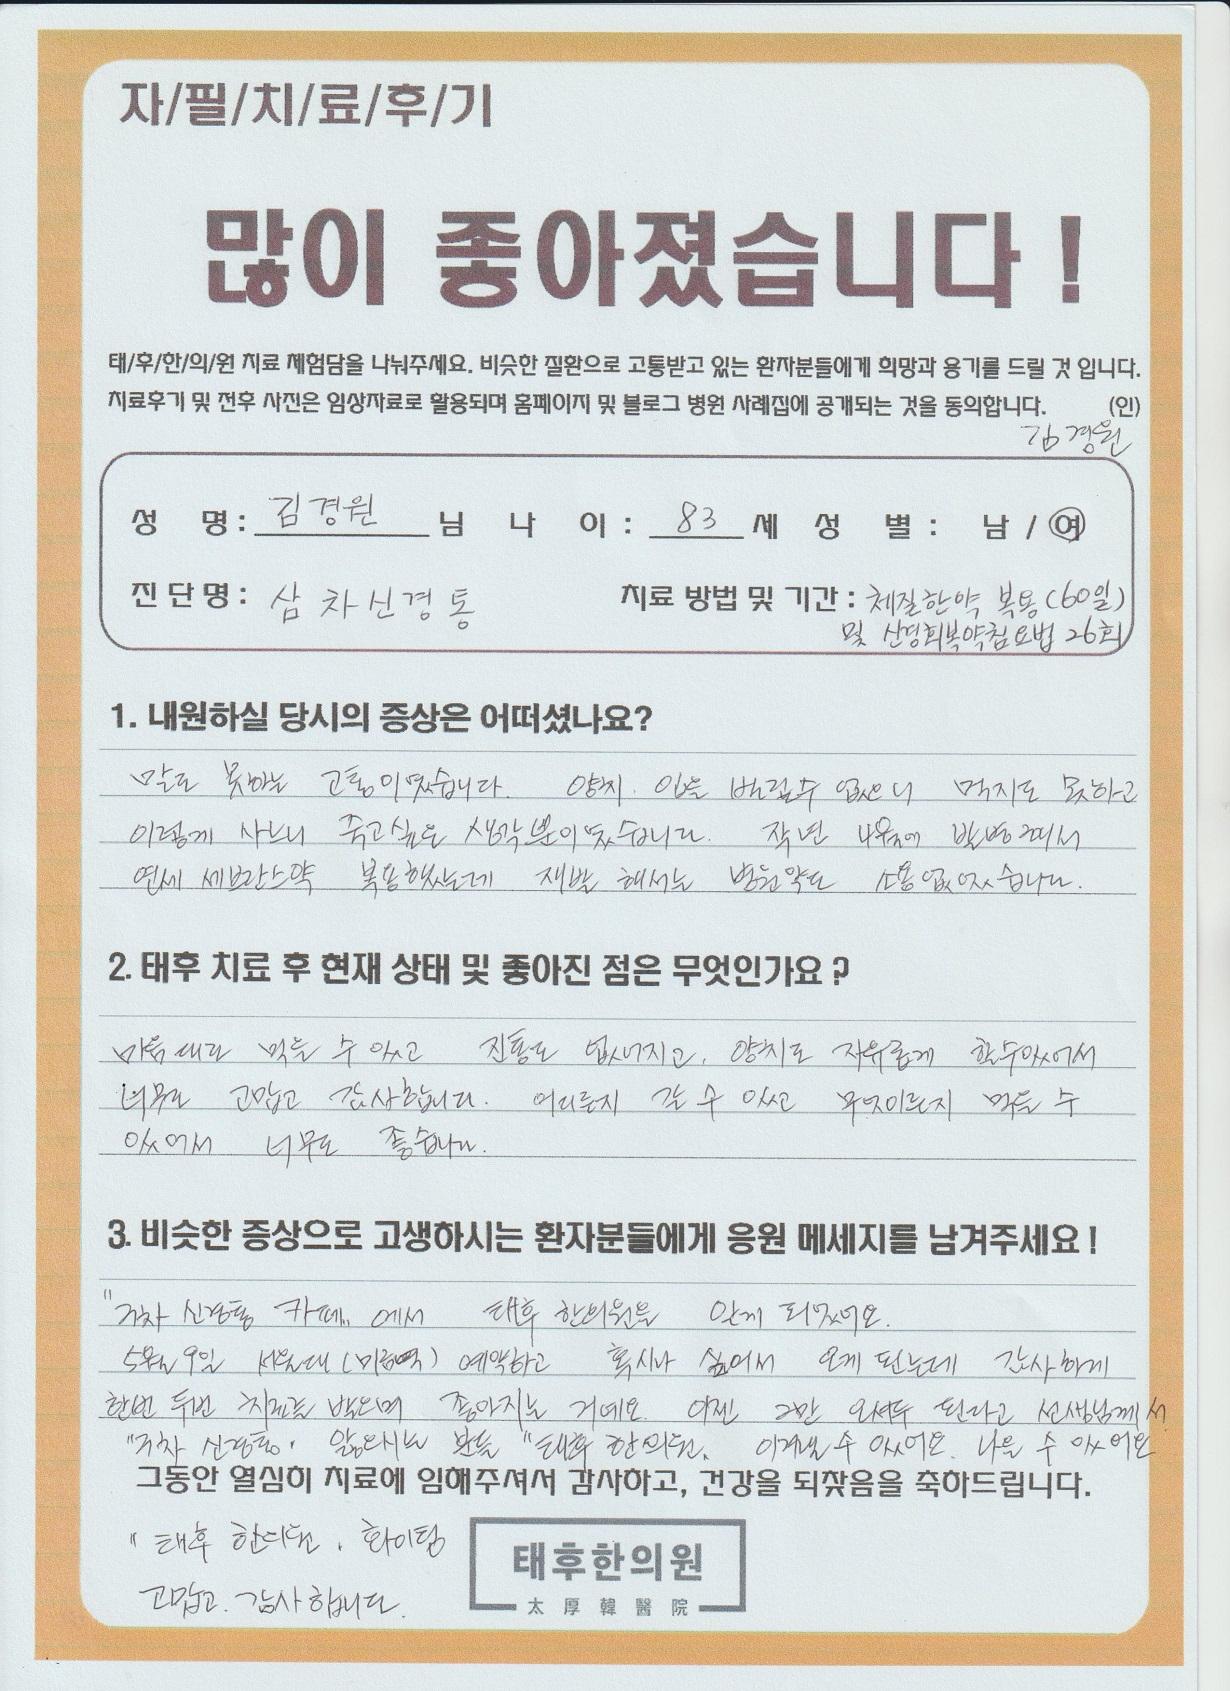 자/필/치/료/후/기
많이 좋아졌습니다!
태/후/한/의/원 치료 체험담을 나눠주세요. 비슷한 질환으로 고통받고 있는 환자분들에게 희망과 용기를 드릴 것 입니다.
치료후기 및 전후 사진은 임상자료로 활용되며 홈페이지 및 블로그 병원 사례집에 공개되는 것을 동의합니다. (인)
김경원
성 명: 김경원 님 나 이: 83 세 성 별: 남 / 여
진단명: 삼차신경통 치료 방법 및 기간: 체질한약 복용(60일)
및 신경회복약침요법 26회
1. 내원하실 당시의 증상은 어떠셨나요?
말도 못하는 고통이였습니다. 양치. 입을 벌릴수 없으니 먹지도 못하고
이렇게 사느니 죽고싶은 생각뿐이였습니다. 작년 여름에 발병해서
연세 세브란스약 복용했는데 재발 해서는 병원약도 소용없었습니다.
2. 태후 치료 후 현재 상태 및 좋아진 점은 무엇인가요?
마음대로 먹을 수 있고 진통도 없어지고, 양치도 자유롭게 할수있어서
너무도 고맙고 감사합니다. 어디든지 갈 수 있고 무엇이든지 먹을 수
있어서 너무도 좋습니다.
3. 비슷한 증상으로 고생하시는 환자분들에게 응원 메세지를 남겨주세요!
신경통 카페" 에서 태후 한의원을 알게 되었어요.
5월 9일 예약하고 혹시나 싶어서 오게 됐는데 감사하게
한번 두번 치료를 받으며 좋아지는 거예요. 이젠 그만 오셔두 된다고 선생님께서
신경통. 앓으시는 분들 "태후 한의원. 이겨낼 수 있어요. 나을 수 있어요
그동안 열심히 치료에 임해주셔서 감사하고, 건강을 되찾음을 축하드립니다.
"태후 한의원. 화이팅
고맙고. 감사합니다.
태후한의원
太厚韓醫院